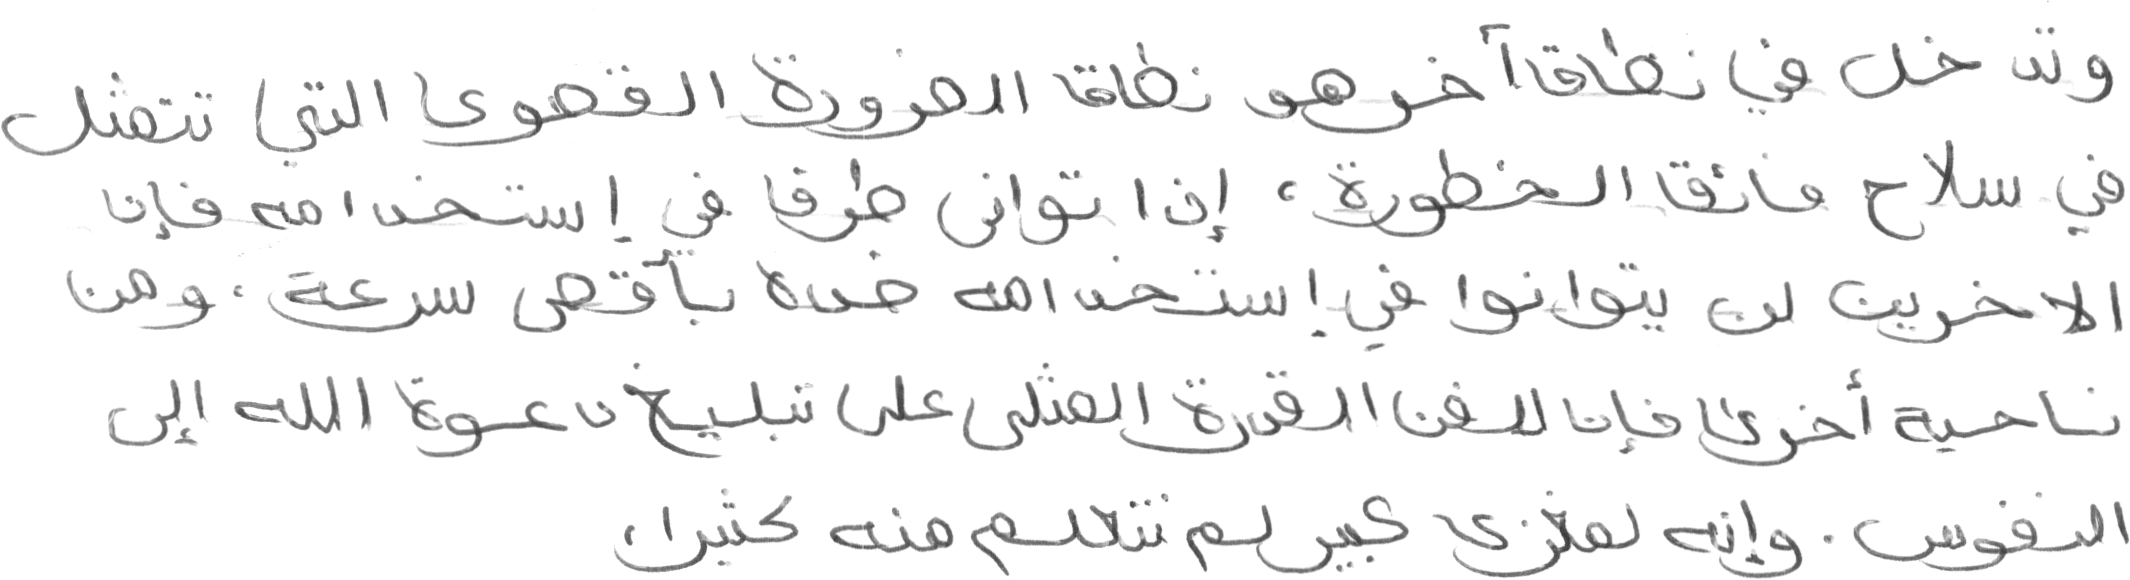 وتدخل في نطاق آخر هو نطاق الضرورة القصوى التي تتمثل
في سلاح فائق الخطورة، إذا توانى طرف في إستخدامه فإن
الاخرين لن يتوانوا في إستخدامه ضده بآقصى سرعة. ومن
ناحية أخرى فإن للفن القدرة المثلى على تبليغ دعوة الله إلى
النفوس. وإنه لمغزى كبير لم نتعلم منه كثيرا،